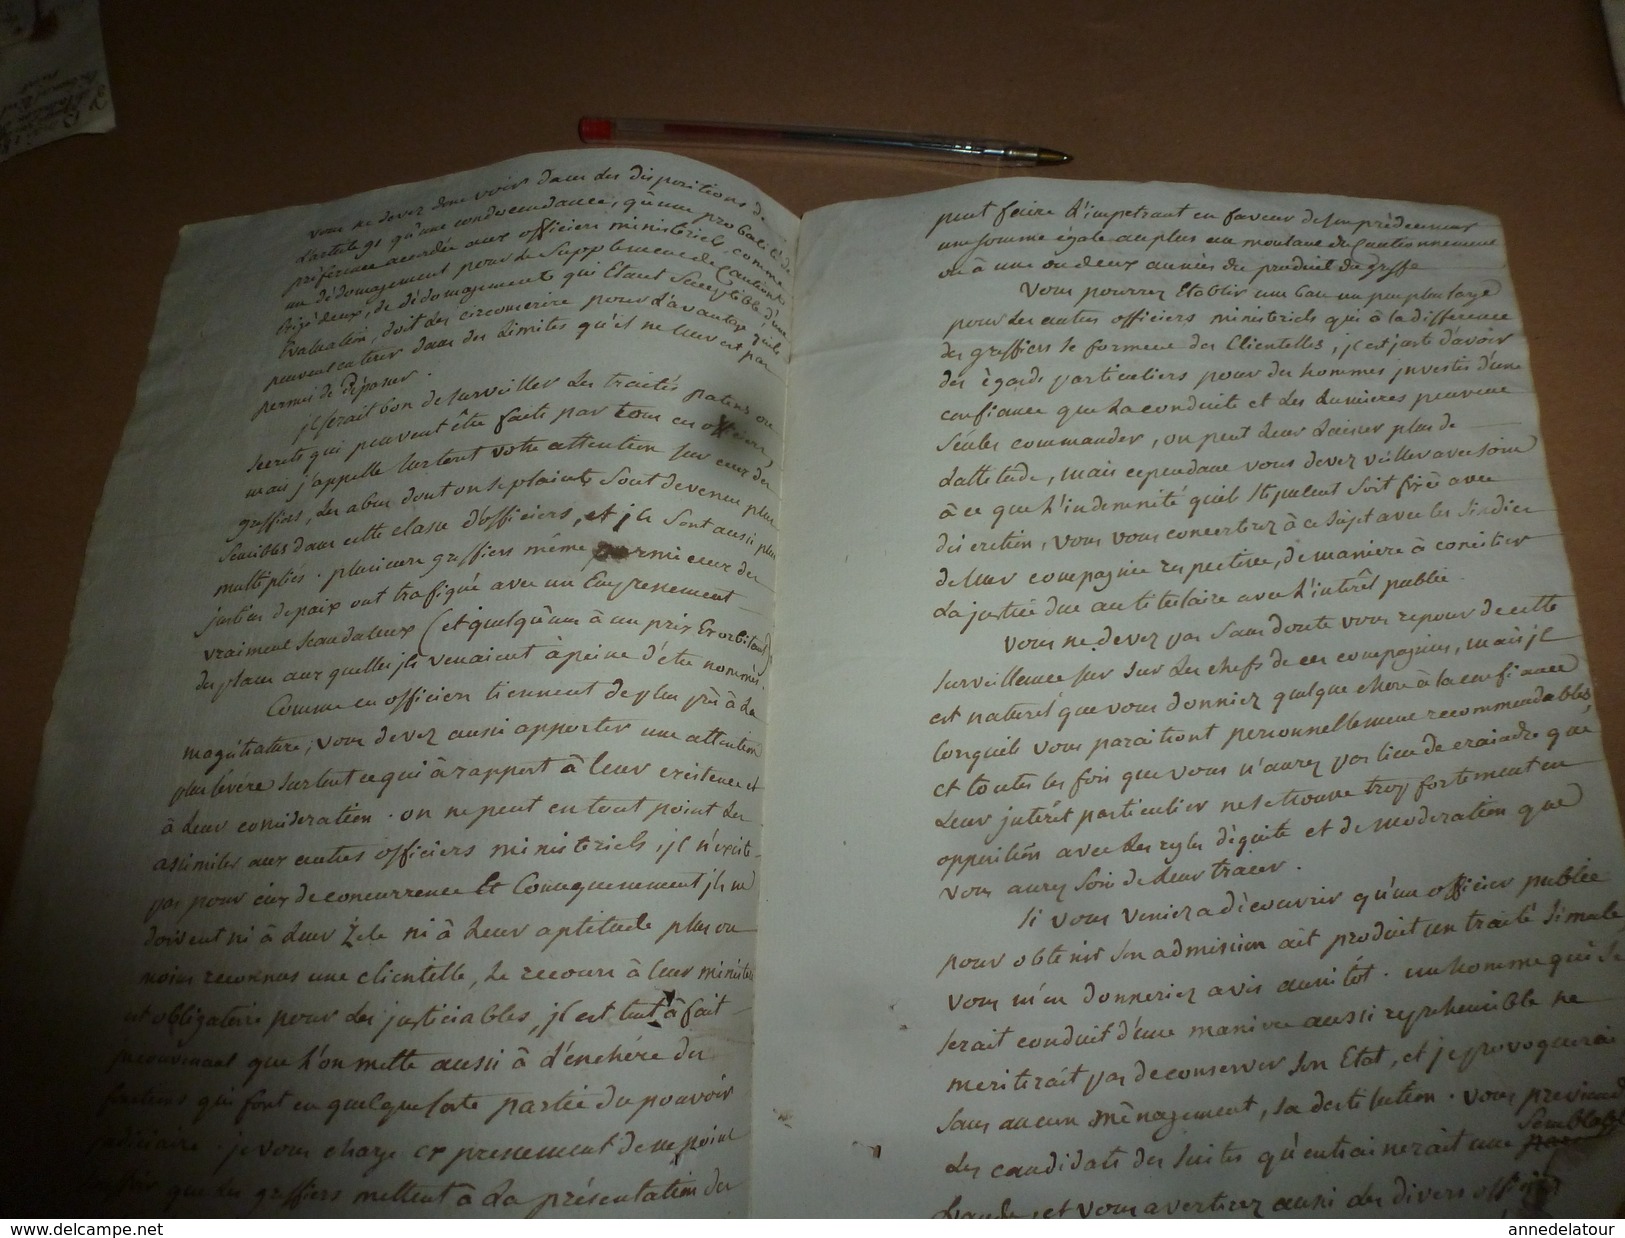 vous ne devez donc voir dans les dispositions de
l'article 91 qu'une condescendance, qu'une probabilité de
préférence accordée aux officiers ministeriels comme
un dédomagement pour le Supplement de Cautiont
Exigé deux, ce dédomagement qui Etant Susceptible d'une
Evaluation, doit les circonscrire pour l'avantage qu'ils
peuvent retirer dans des limites qu'il ne leur est pas
permis de dépasser.
il serait bon de surveiller les traités patens ou
secrets qui peuvent être faits par tous ces officiers,
mais j'appelle surtout votre attention sur ceux des
greffiers, les abus dont on se plaint Sont devenus plus
Sensibles dans cette classe d'officiers, et ils Sont aussi plus
multipliés. plusieurs greffiers même parmi ceux des
justices de paix ont trafiqué avec un Empressement
vraiment scandaleux (et quelqu'uns à un prix Exorbitant)
des places aux quelles ils venaient à peine d'être nommés.
Comme ces officiers tiennent de plus près à la
magistrature, vous devez aussi apporter une attention
plus sévère sur tout ce qui à rapport à leur existence et
à leur consideration. on ne peut en tout point les
assimiler aux autres officiers ministeriels, il n'existe
pas pour eux de concurrence Et Consequemment ils ne
doivent ni à leur Zele ni à leur aptitude plus ou
moins reconnus une clientelle, le recours à leur ministère
est obligatoire pour les justiciables, il est tout à fait
inconvenant que l'on mette aussi à l'enchére des
fonctions qui font en quelque sorte partie du pouvoir
judiciaire. je vous charge expressement de ne point
souffrir que les greffiers mettent à la présentation des
peut faire l'impetrant en faveur de son prédecesseur
une somme égale au plus au montant du Cautionnement
ou à une ou deux années du produit du greffe
Vous pourrez Etablir une base un peu plus large
pour les autres officiers ministeriels qui à la différence
des greffiers se forment des Clientelles, il est juste d'avoir
des égards particuliers pour des hommes investis d'une
confiance que la conduite et les lumieres peuvent
Seules commander, on peut leur laisser plus de
latitude, mais cependant vous devez veiller avec soin
à ce que l'indemnité qu'ils Stipulent Soit fixée avec
discretion, vous vous concerterez à ce sujet avec les Sindics
de leur compagnie respective, de maniere à concilier
la justice due au titulaire avec l'intérêt public.
Vous ne devez pas Sans doute vous reposer de cette
surveillance sur les chefs de ces compagnies, mais il
est naturel que vous donniez quelque chose à la confiance
lorsqu'ils vous paraitront personnellement recommandables,
et toutes les fois que vous n'aurez pas lieu de craindre que
leur intérêt particulier ne se trouve trop fortement en
opposition avec les regles d'équité et de moderation que
vous aurez Soin de leur tracer.
Si vous veniez a découvrir qu'un officier public
pour obtenir Son admission ait produit un traité Simulé,
vous m'en donneriez avis aussitôt. un homme qui Se
serait conduit d'une maniere aussi reprehensible ne
meriterait pas de conserver Son Etat, et je provoquerai
sans aucun ménagement, sa destitution. vous previendrez
Semblable
les candidats des Suites qu'entrainerait une
fraude, et vous avertirez aussi les divers officiers
annedelatour